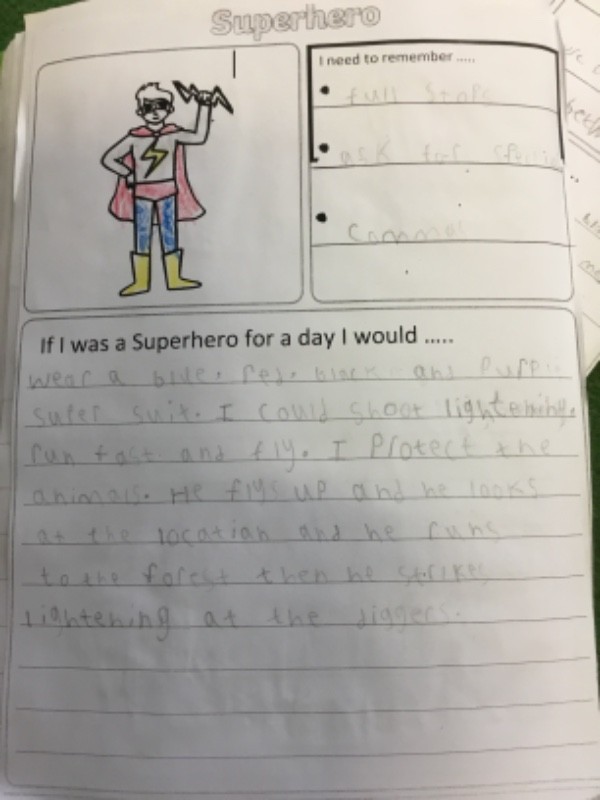 Superhero
I need to remember .....
full stops
ask for
If I was a Superhero for a day I would .....
wear a blue. red. black and
super suit. I could shoot lightening.
run fast and fly. I Protect the
animals. He flys up and he looks
at the location and he runs
to the forest then he strikes
lightening at the diggers.